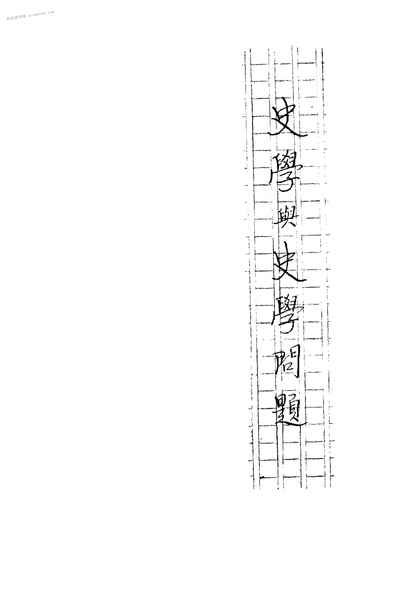 史學與史學問題